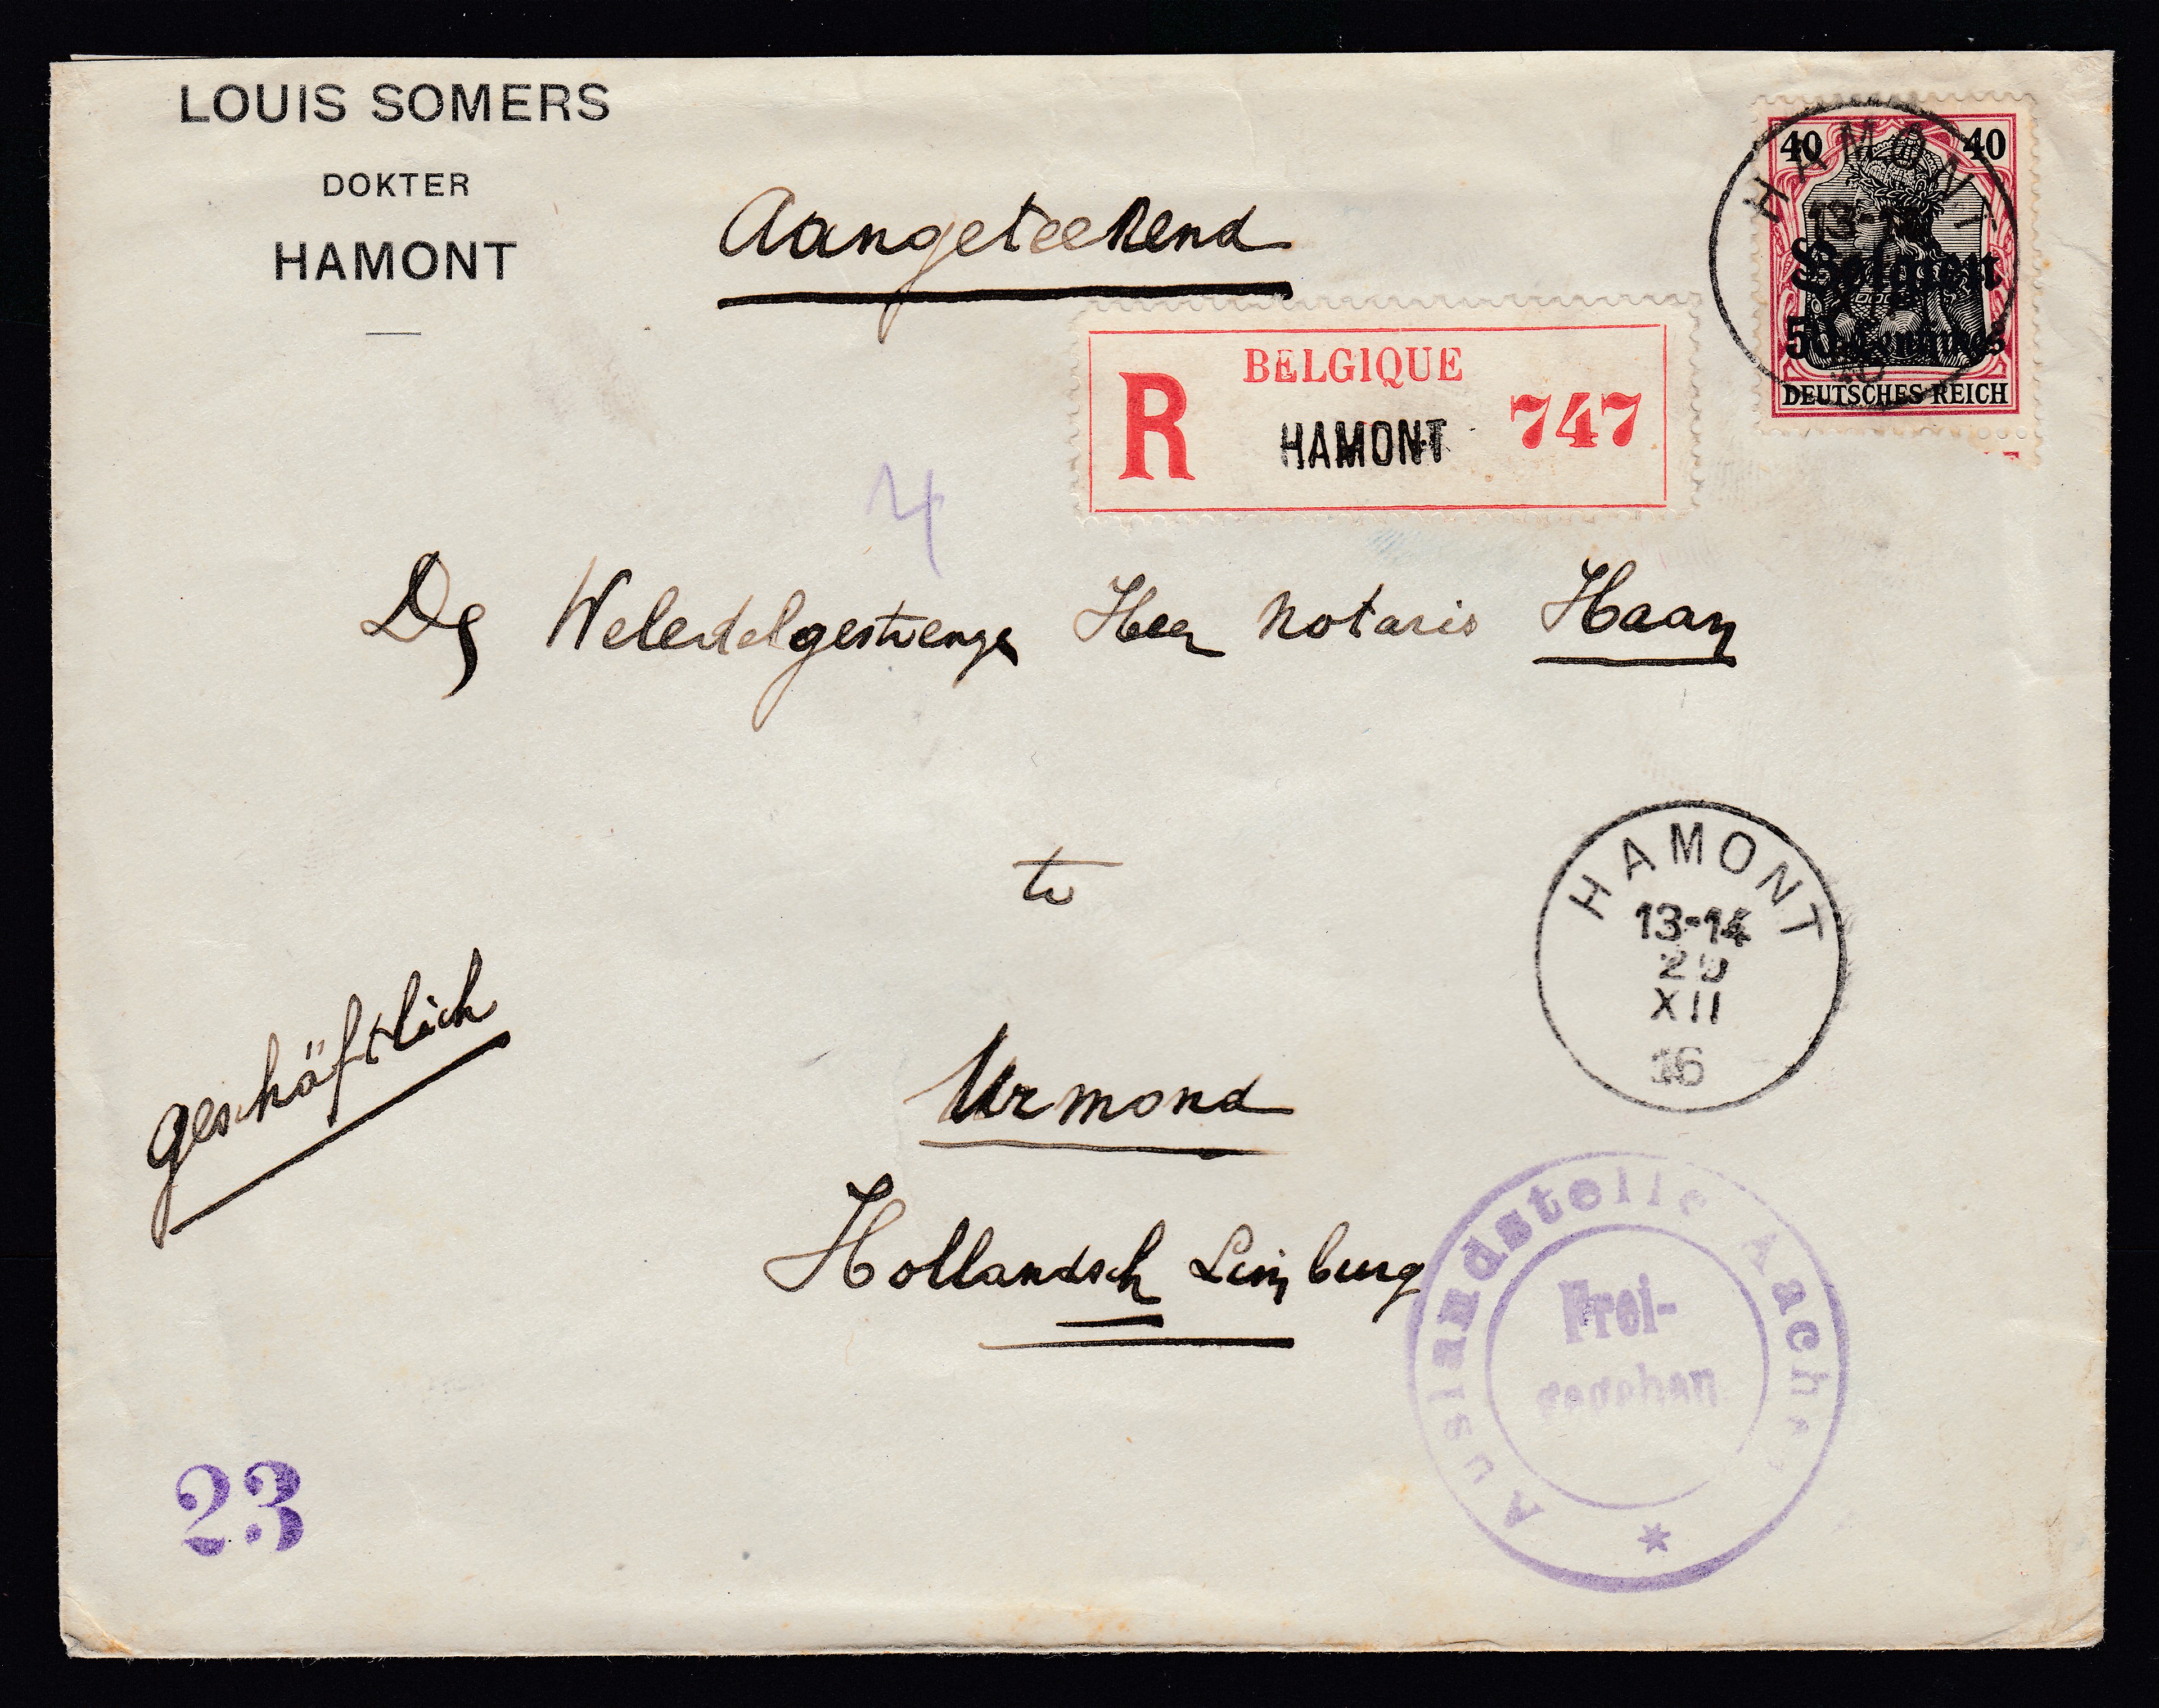 LOUIS SOMERS
DOKTER
HAMONT
Aangeteekend
40 40
HAMONT
Belgien
50 Centimes
DEUTSCHES REICH
BELGIQUE
R HAMONT 747
4
De Weledelgestrenge Heer Notaris Haan
te
HAMONT
13-14
XII
16
geschäftlich
Urmond
Hollandsch Limburg
Auslandstelle Aachen
Frei-
gegeben
23